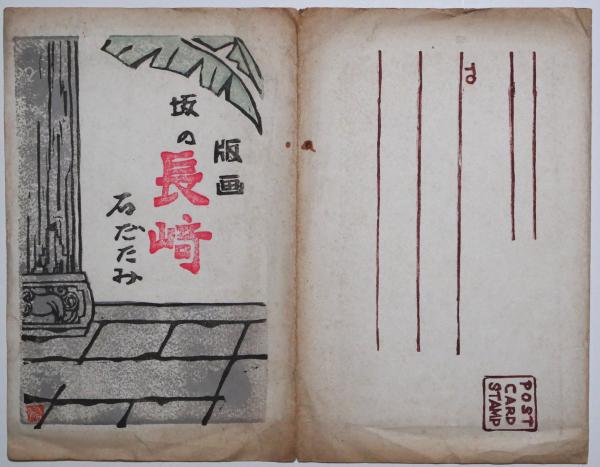 版画
坂の
長崎
石だたみ
TO
POST
CARD
STAMP